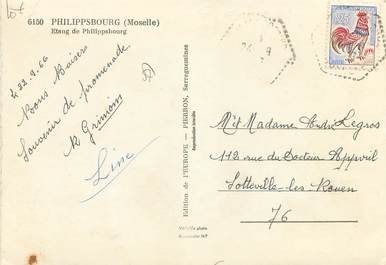 6150 PHILIPPSBOURG (Moselle)
Etang de Philippsbourg
Bons Baisers
Souvenir de promenade
Line
Edition de l'EUROPE — PIERRON, Sarreguemines
Reproduction interdite
Véritable photo
Mr et Madame André Legros
112 rue du Docteur
Sotteville-les-Rouen
76